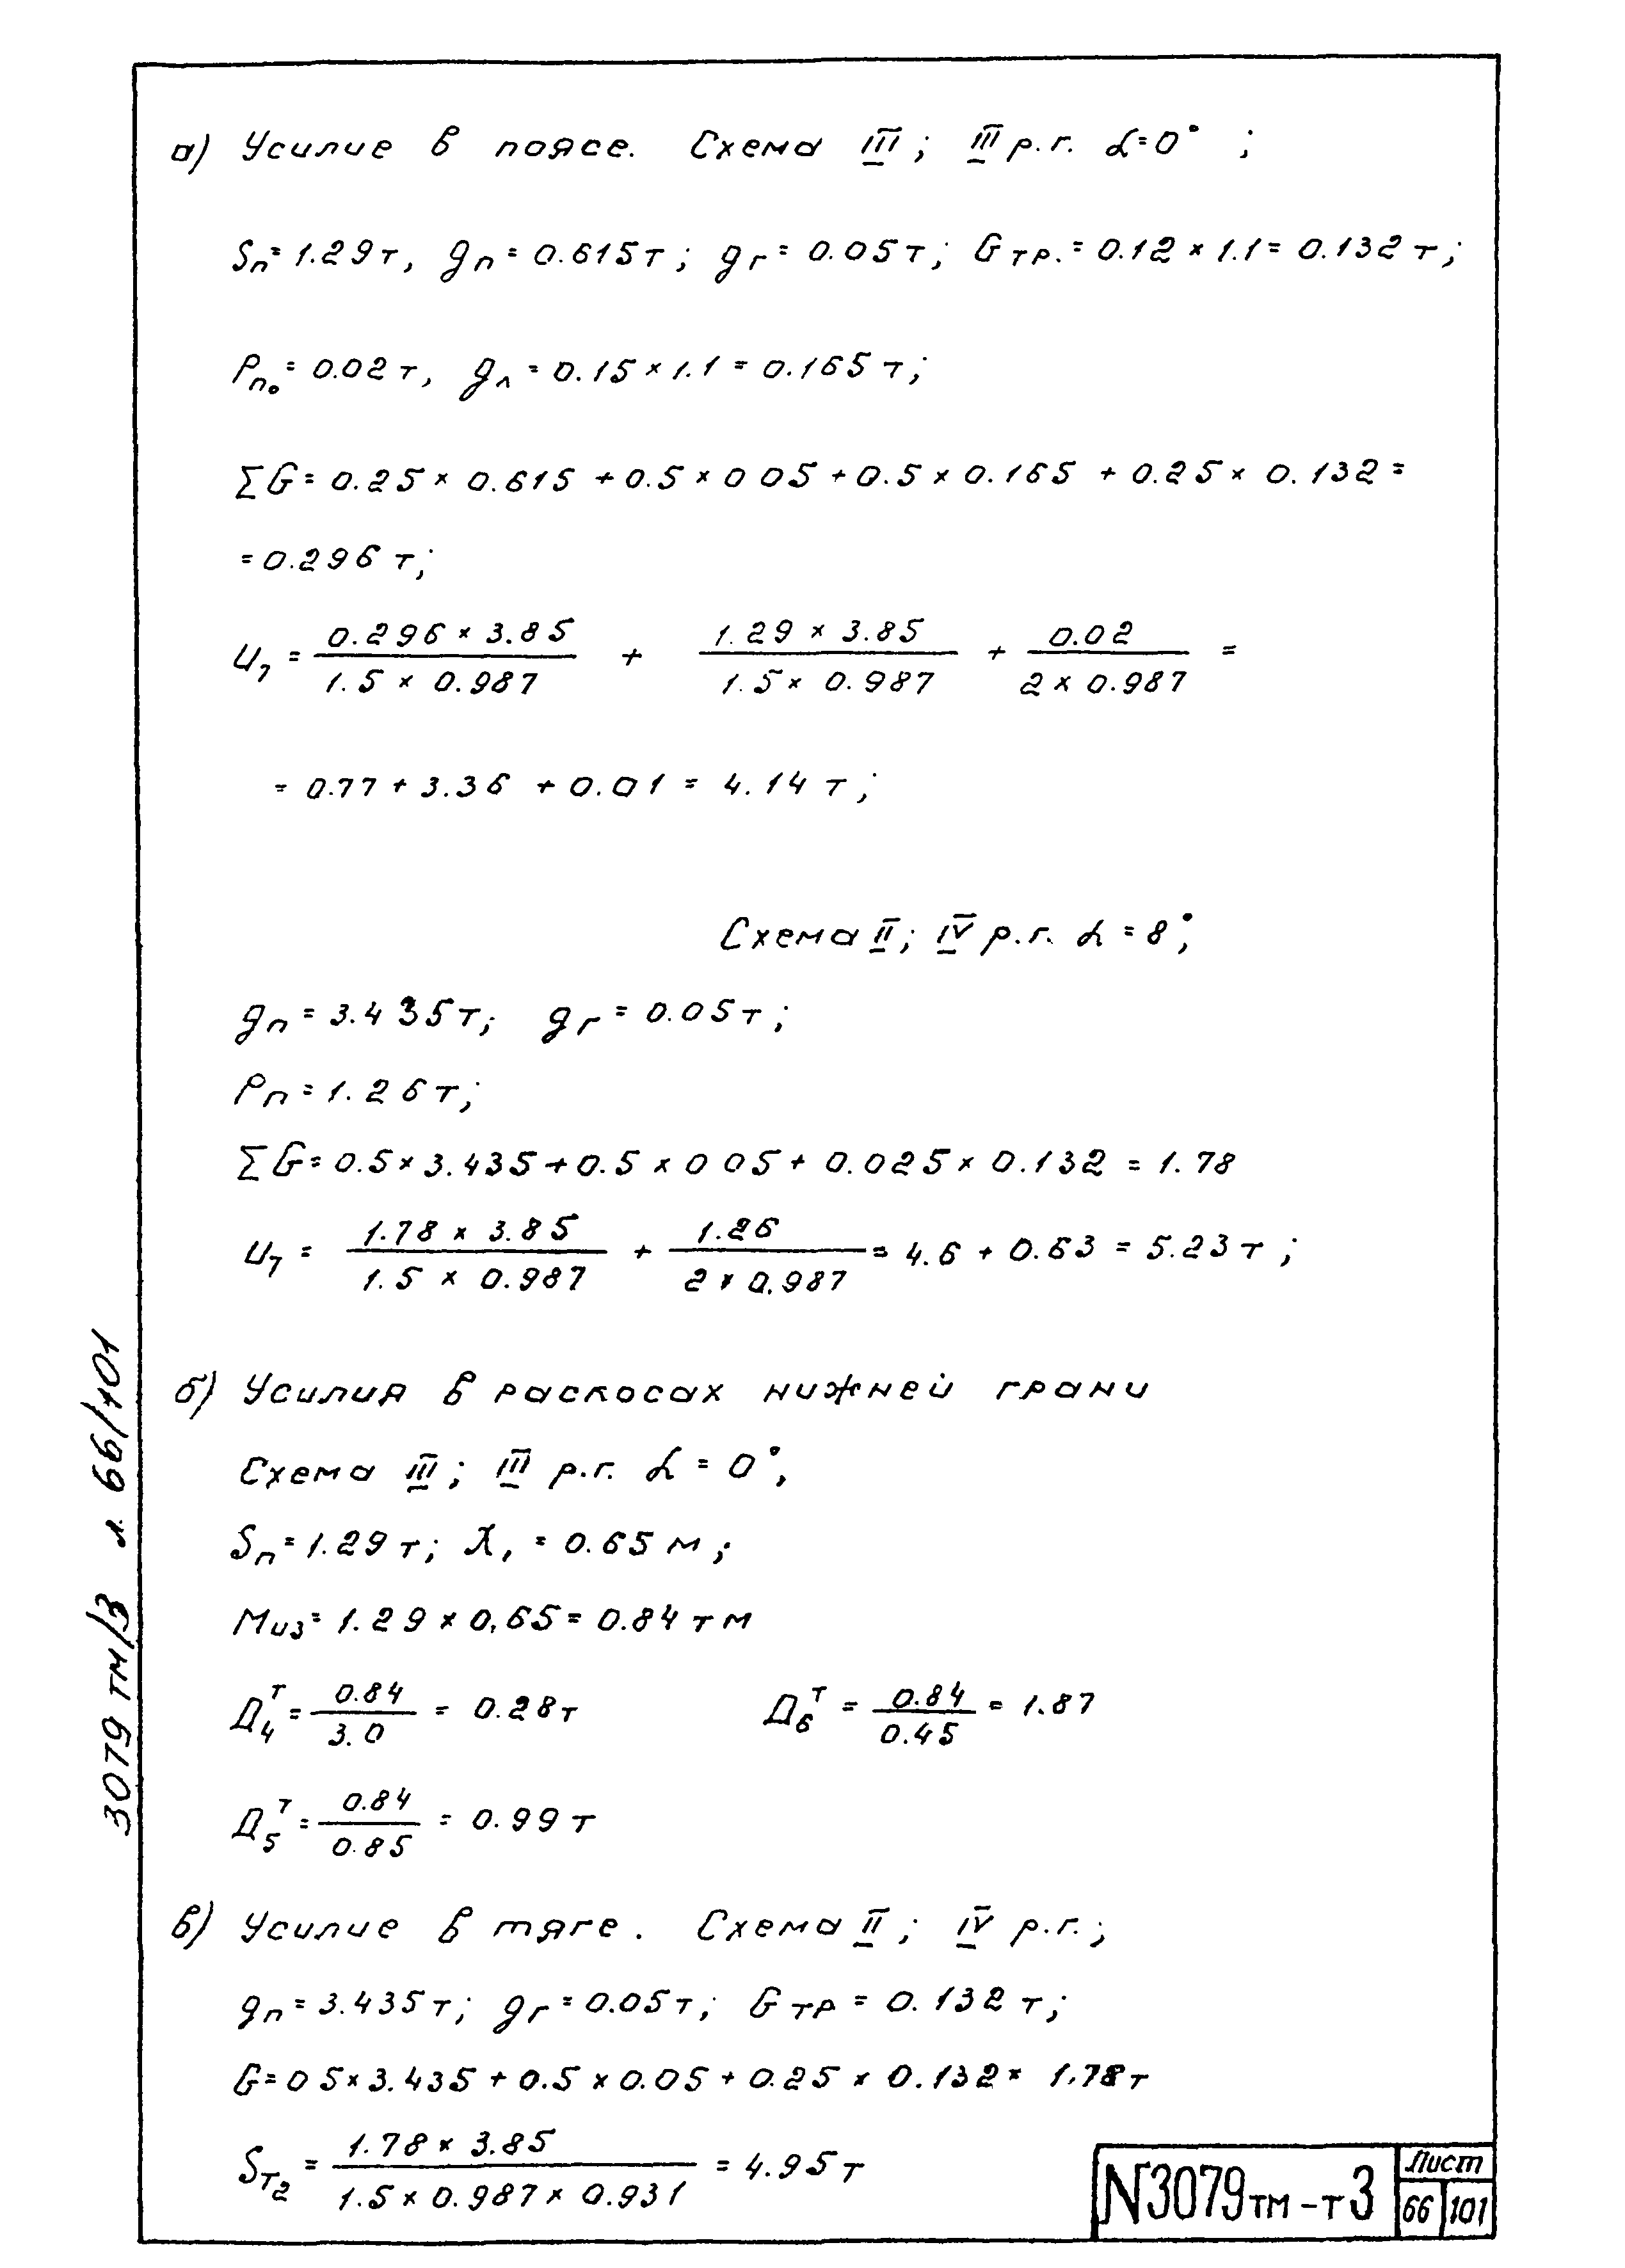 а) Усилие в поясе. Схема III; III р.г. α=0° ;
Sп=1.29т, gп=0.615т; gг=0.05т; Gтр.=0.12×1.1=0.132т;
Pпо=0.02т, gл=0.15×1.1=0.165т;
ΣG=0.25×0.615+0.5×0 05+0.5×0.165+0.25×0.132=
=0.296т;
U7 = (0.296×3.85)/(1.5×0.987) + (1.29×3.85)/(1.5×0.987) + 0.02/(2×0.987) =
=0.77+3.36+0.01=4.14т;
Схема II; IV р.г. α=8°;
gп=3.435т; gг=0.05т;
Pп=1.26т;
ΣG=0.5×3.435+0.5×0 05+0.025×0.132=1.78
U7 = (1.78×3.85)/(1.5×0.987) + 1.26/(2×0.987) = 4.6+0.63=5.23т;
б) Усилия в раскосах нижней грани
Схема III; III р.г. α=0°,
Sп=1.29т; X1=0.65м;
Mиз=1.29×0,65=0.84тм
Д4т = 0.84/3.0 = 0.28т Д6т = 0.84/0.45 = 1.87
Д5т = 0.84/0.85 = 0.99т
в) Усилие в тяге. Схема II; IV р.г.;
gп=3.435т; gг=0.05т; Gтр=0.132т;
G=0 5×3.435+0.5×0.05+0.25×0.132= 1.78т
Sт2 = (1.78×3.85)/(1.5×0.987×0.931) = 4.95т
3079тм/3 л. 66/101
N3079тм-т3
Лист
66 101